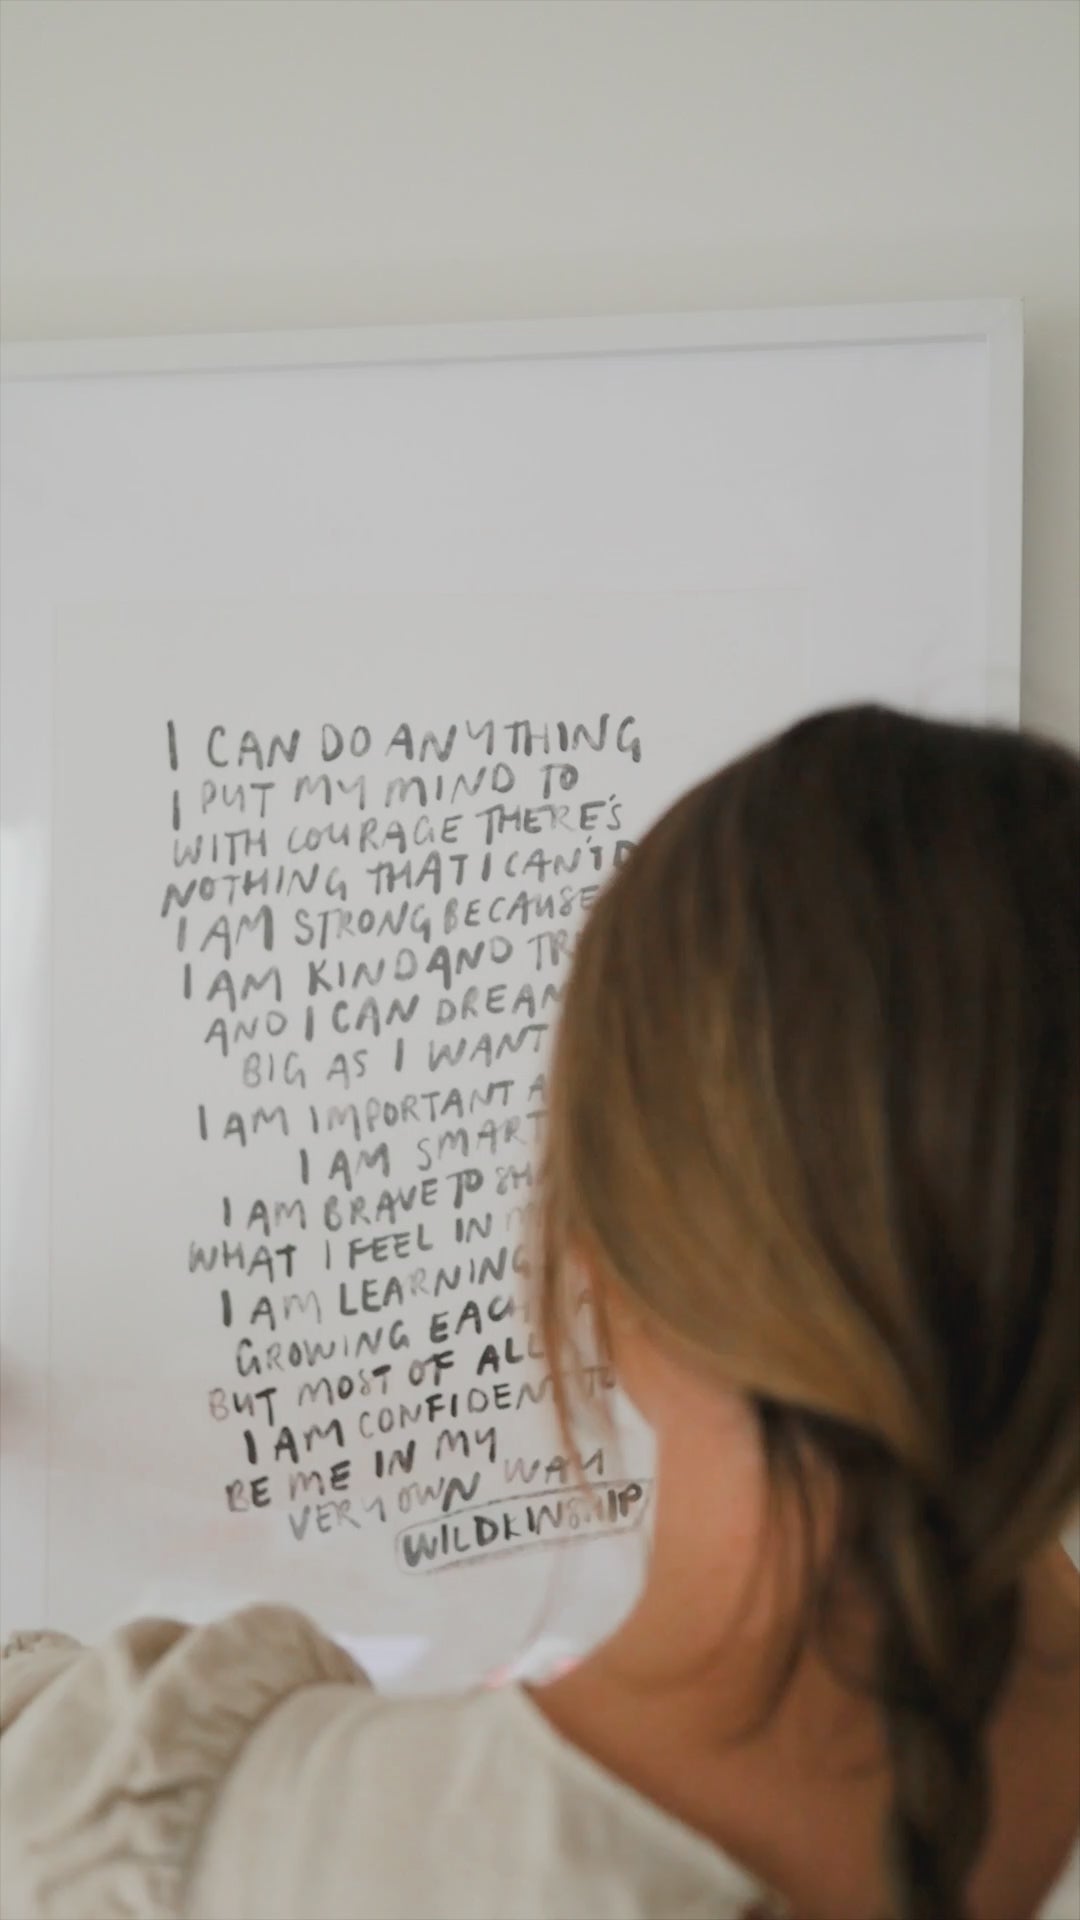 I CAN DO ANYTHING
I PUT MY MIND TO
WITH COURAGE THERE'S
NOTHING THAT I CAN'T
I AM STRONG BECAUSE
I AM KIND AND
AND I CAN DREAM
BIG AS I WANT
I AM IMPORTANT
I AM SMART
I AM BRAVE TO
WHAT I FEEL IN
I AM LEARNING
GROWING EACH
BUT MOST OF ALL
I AM CONFIDENT TO
BE ME IN MY
VERY OWN WAY
WILDKINSHIP